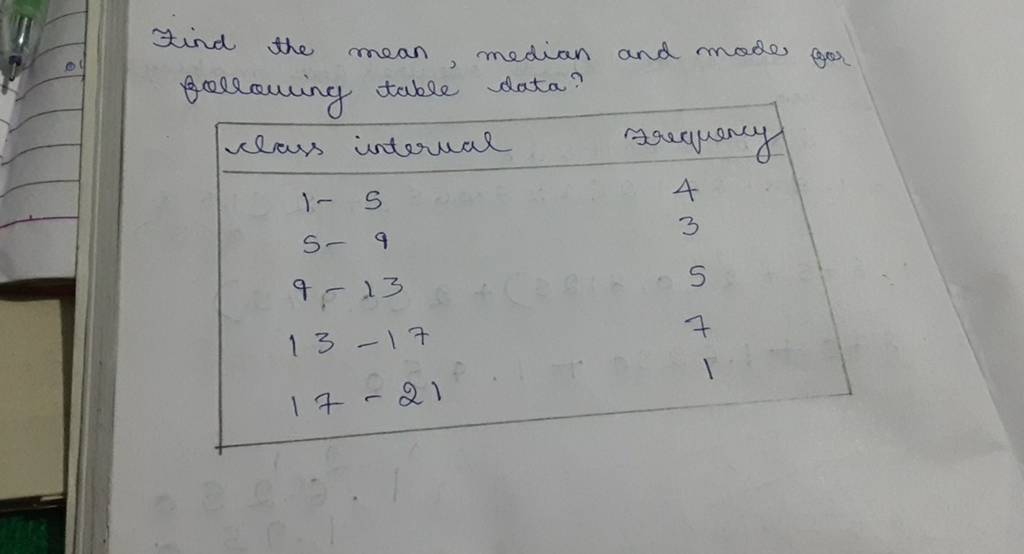 Find the mean, median and mode for
following table data?
class interval Frequency
1- 5 4
5- 9 3
9-13 5
13-17 7
17-21 1